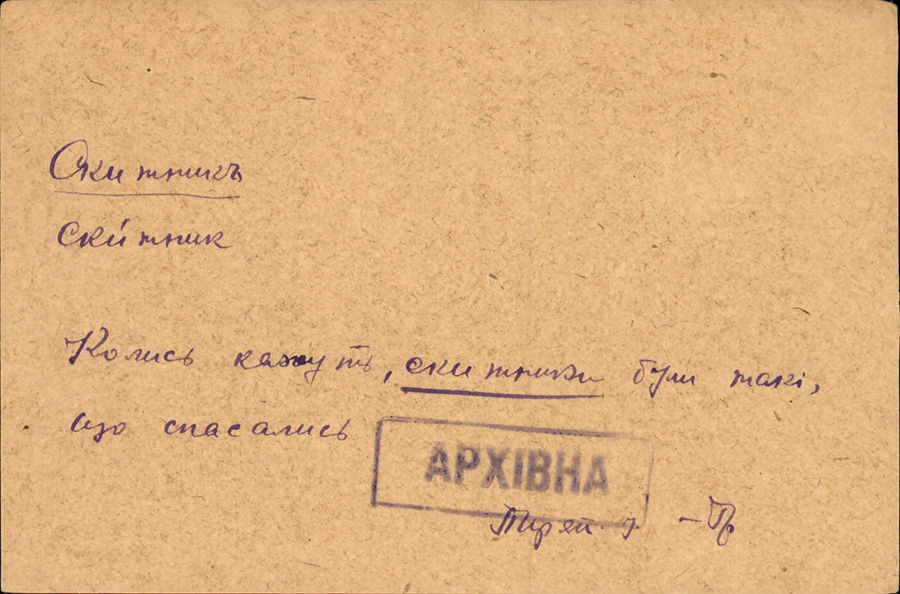 Скитникъ
ски́тник
Колись кажуть, скитники були такі,
що спасались
АРХІВНА